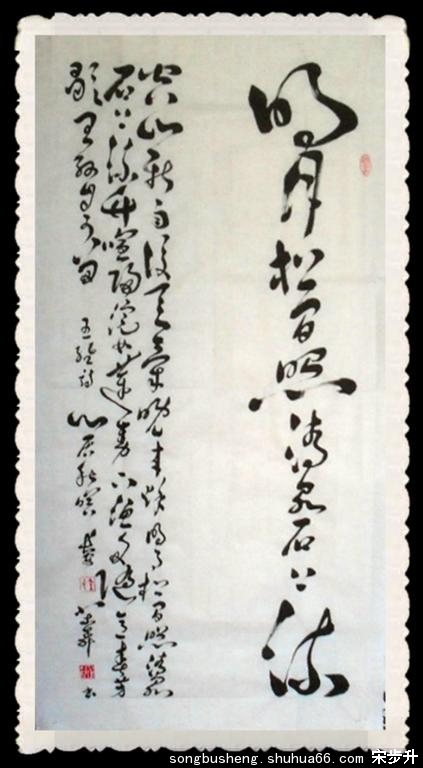 明月松间照清泉石上流
空山新雨後天氣晚来秋明月松间照清泉
石上流竹喧归浣女莲动下渔舟随意春芳
歇王孙自可留 王维诗 山居秋暝 步升 书
songbusheng.shuhua66.com 宋步升